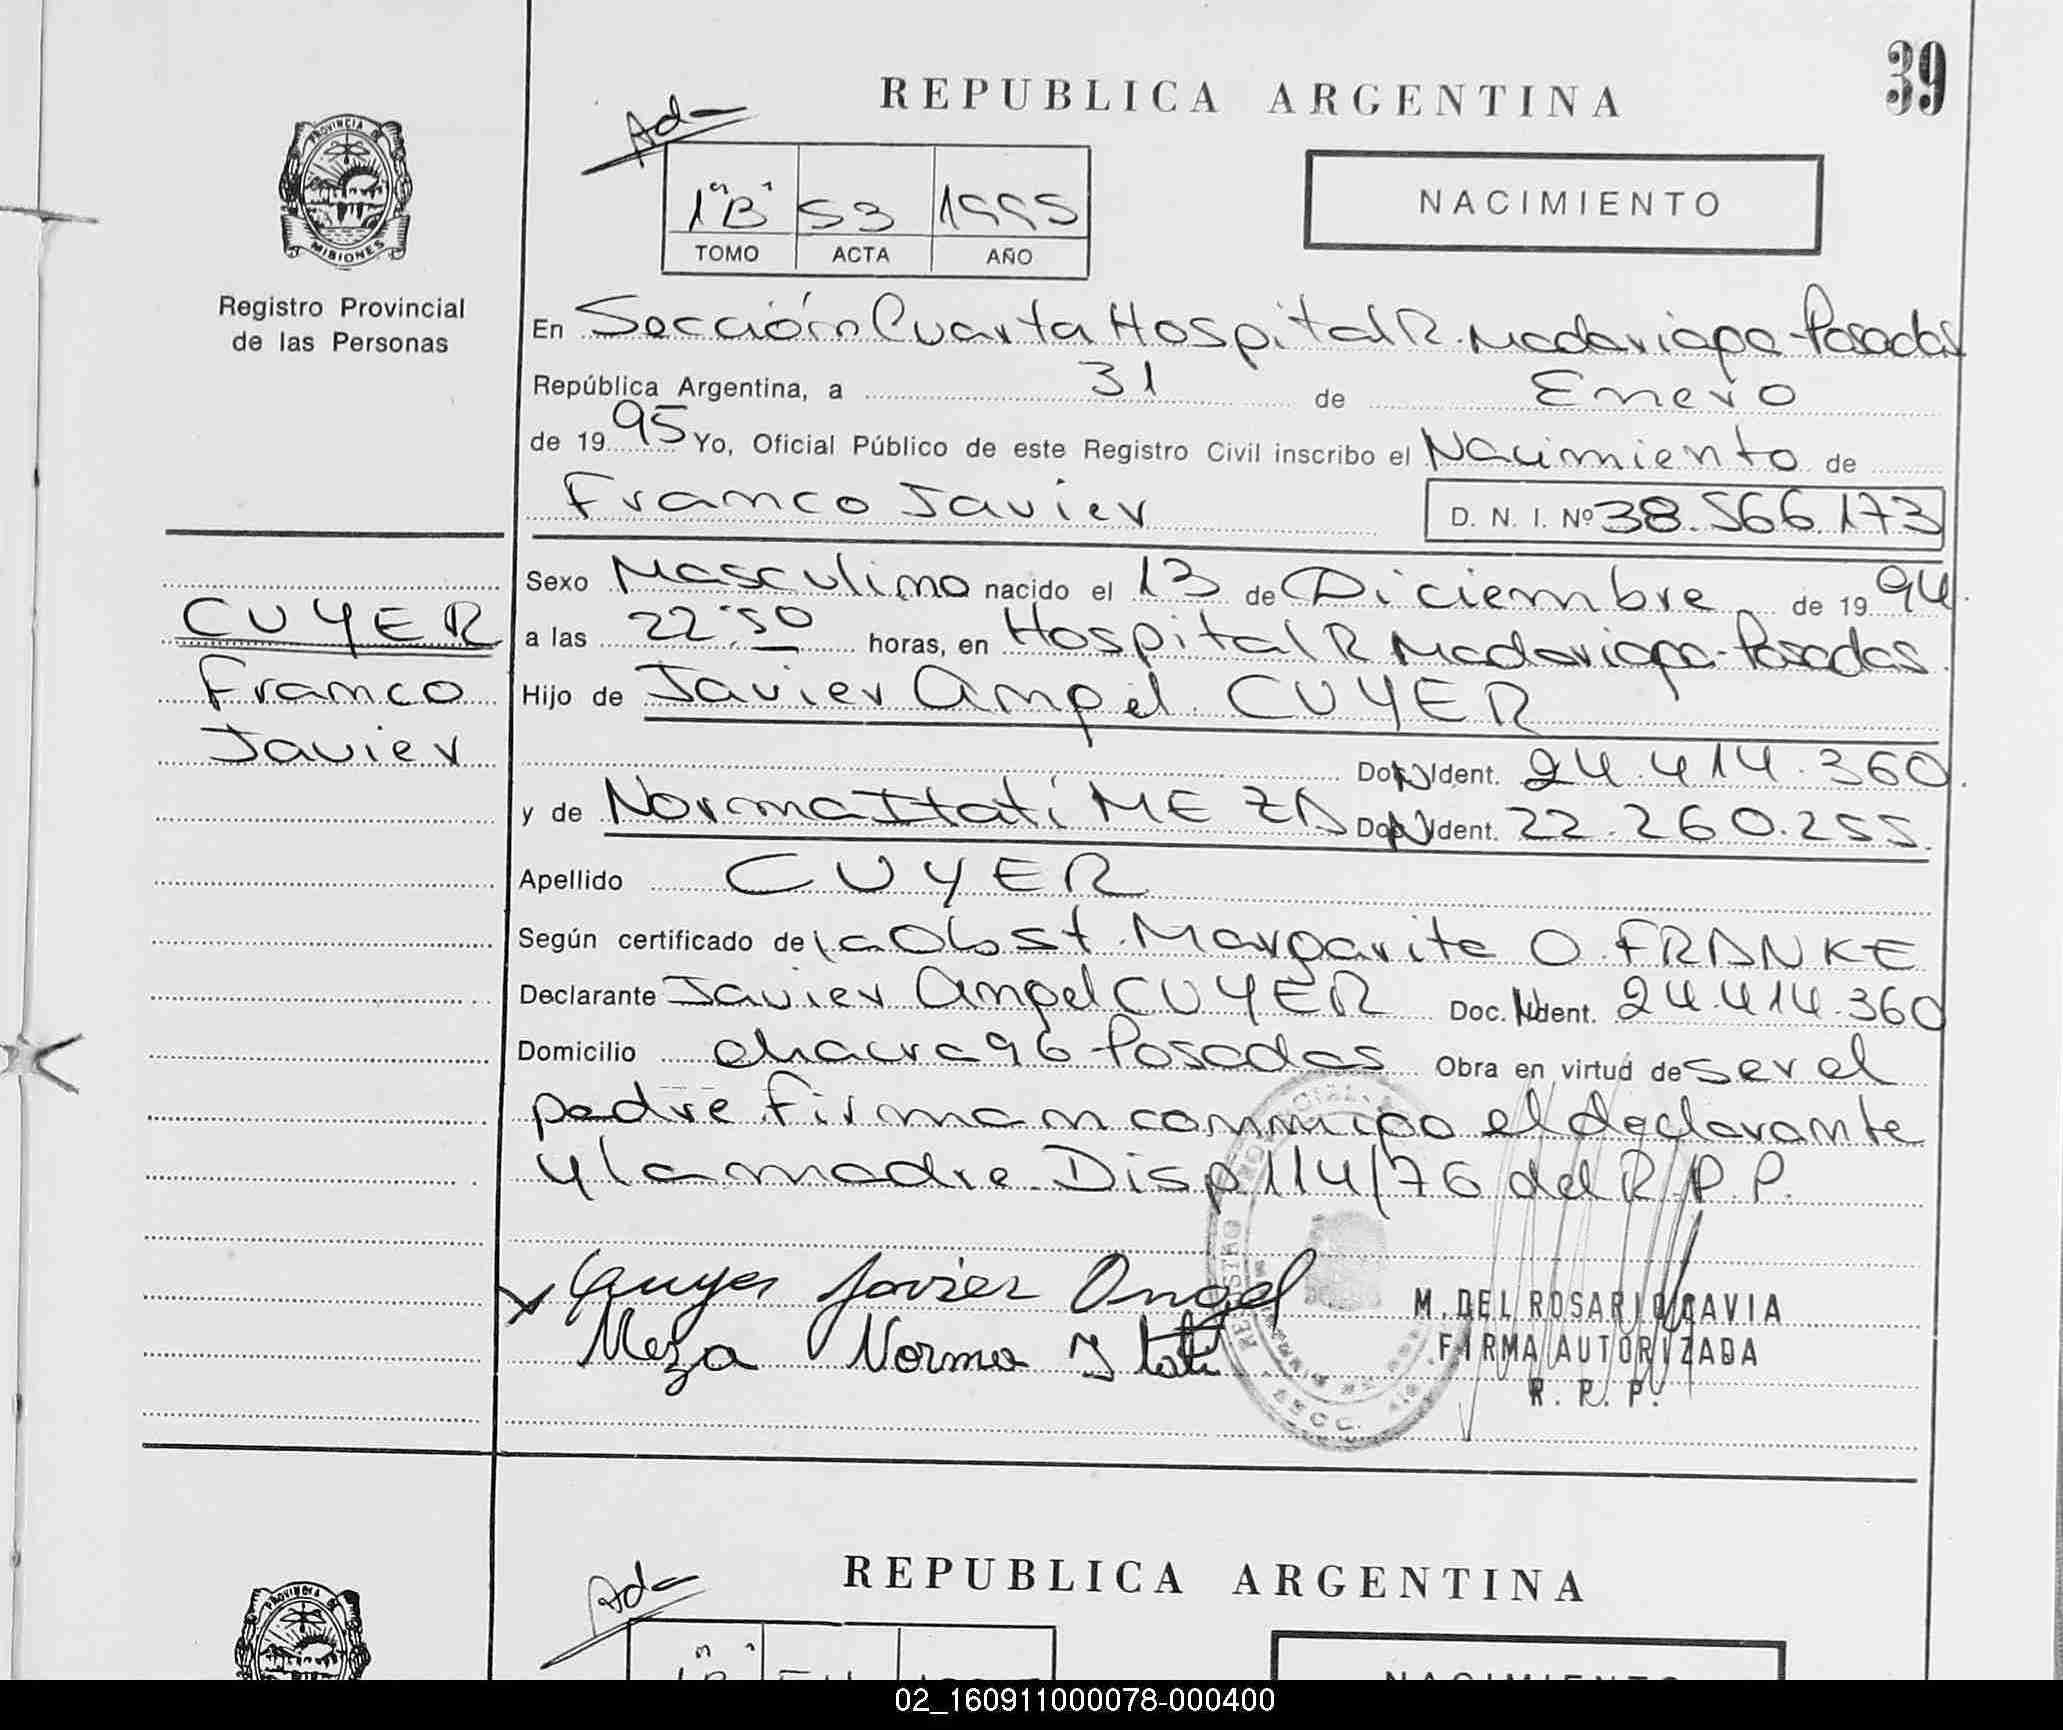 39
REPUBLICA ARGENTINA
Ad-
1º "B" 53 1995
TOMO ACTA AÑO
NACIMIENTO
PROVINCIA DE
MISIONES
Registro Provincial
de las Personas
En Sección Cuarta Hospital R. Madariaga - Posadas
República Argentina, a 31 de Enero
de 19 95 Yo, Oficial Público de este Registro Civil inscribo el Nacimiento de
Franco Javier D. N. I. Nº 38.566.173
CUYER
Franco
Javier
Sexo Masculino nacido el 13 de Diciembre de 19 94.
a las 22:50 horas, en Hospital R Madariaga - Posadas.
Hijo de Javier Angel CUYER
Doc. Ident. 24.414.360.
y de Norma Itatí MEZA Doc. Ident. 22.260.255.
Apellido CUYER
Según certificado de la Obst. Margarita O. FRANKE
Declarante Javier Angel CUYER Doc. Ident. 24.414.360
Domicilio chacra 96 Posadas Obra en virtud de ser el
padre firman conmigo el declarante
y la madre Disp 114/76 del R.P.P.
Cuyer Javier Angel
Meza Norma Itati
M. DEL ROSARIO CAVIA
FIRMA AUTORIZADA
R. P. P.
REPUBLICA ARGENTINA
Ad-
NACIMIENTO
02_160911000078-000400